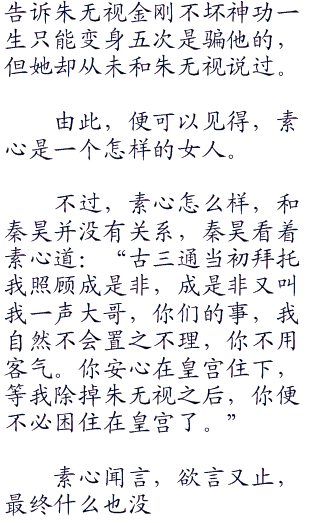 告诉朱无视金刚不坏神功一
生只能变身五次是骗他的，
但她却从未和朱无视说过。
由此，便可以见得，素
心是一个怎样的女人。
不过，素心怎么样，和
秦昊并没有关系，秦昊看着
素心道：“古三通当初拜托
我照顾成是非，成是非又叫
我一声大哥，你们的事，我
自然不会置之不理，你不用
客气。你安心在皇宫住下，
等我除掉朱无视之后，你便
不必困住在皇宫了。”
素心闻言，欲言又止，
最终什么也没